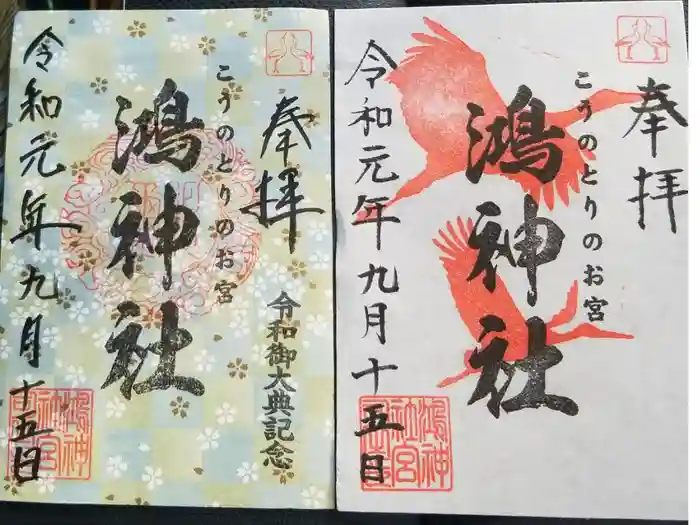 奉拝
こうのとりのお宮
鴻神社
令和御大典記念
令和元年九月十五日
奉拝
こうのとりのお宮
鴻神社
令和元年九月十五日